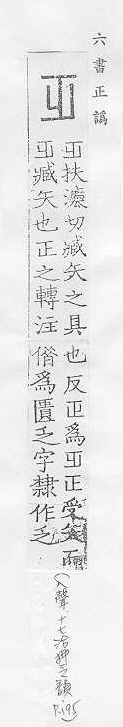 六書正譌
扶灋切臧矢之具也反正爲正受矢而
臧矢也正之轉注借爲匱乏字隸作乏
入聲十七洽 韻
P.195